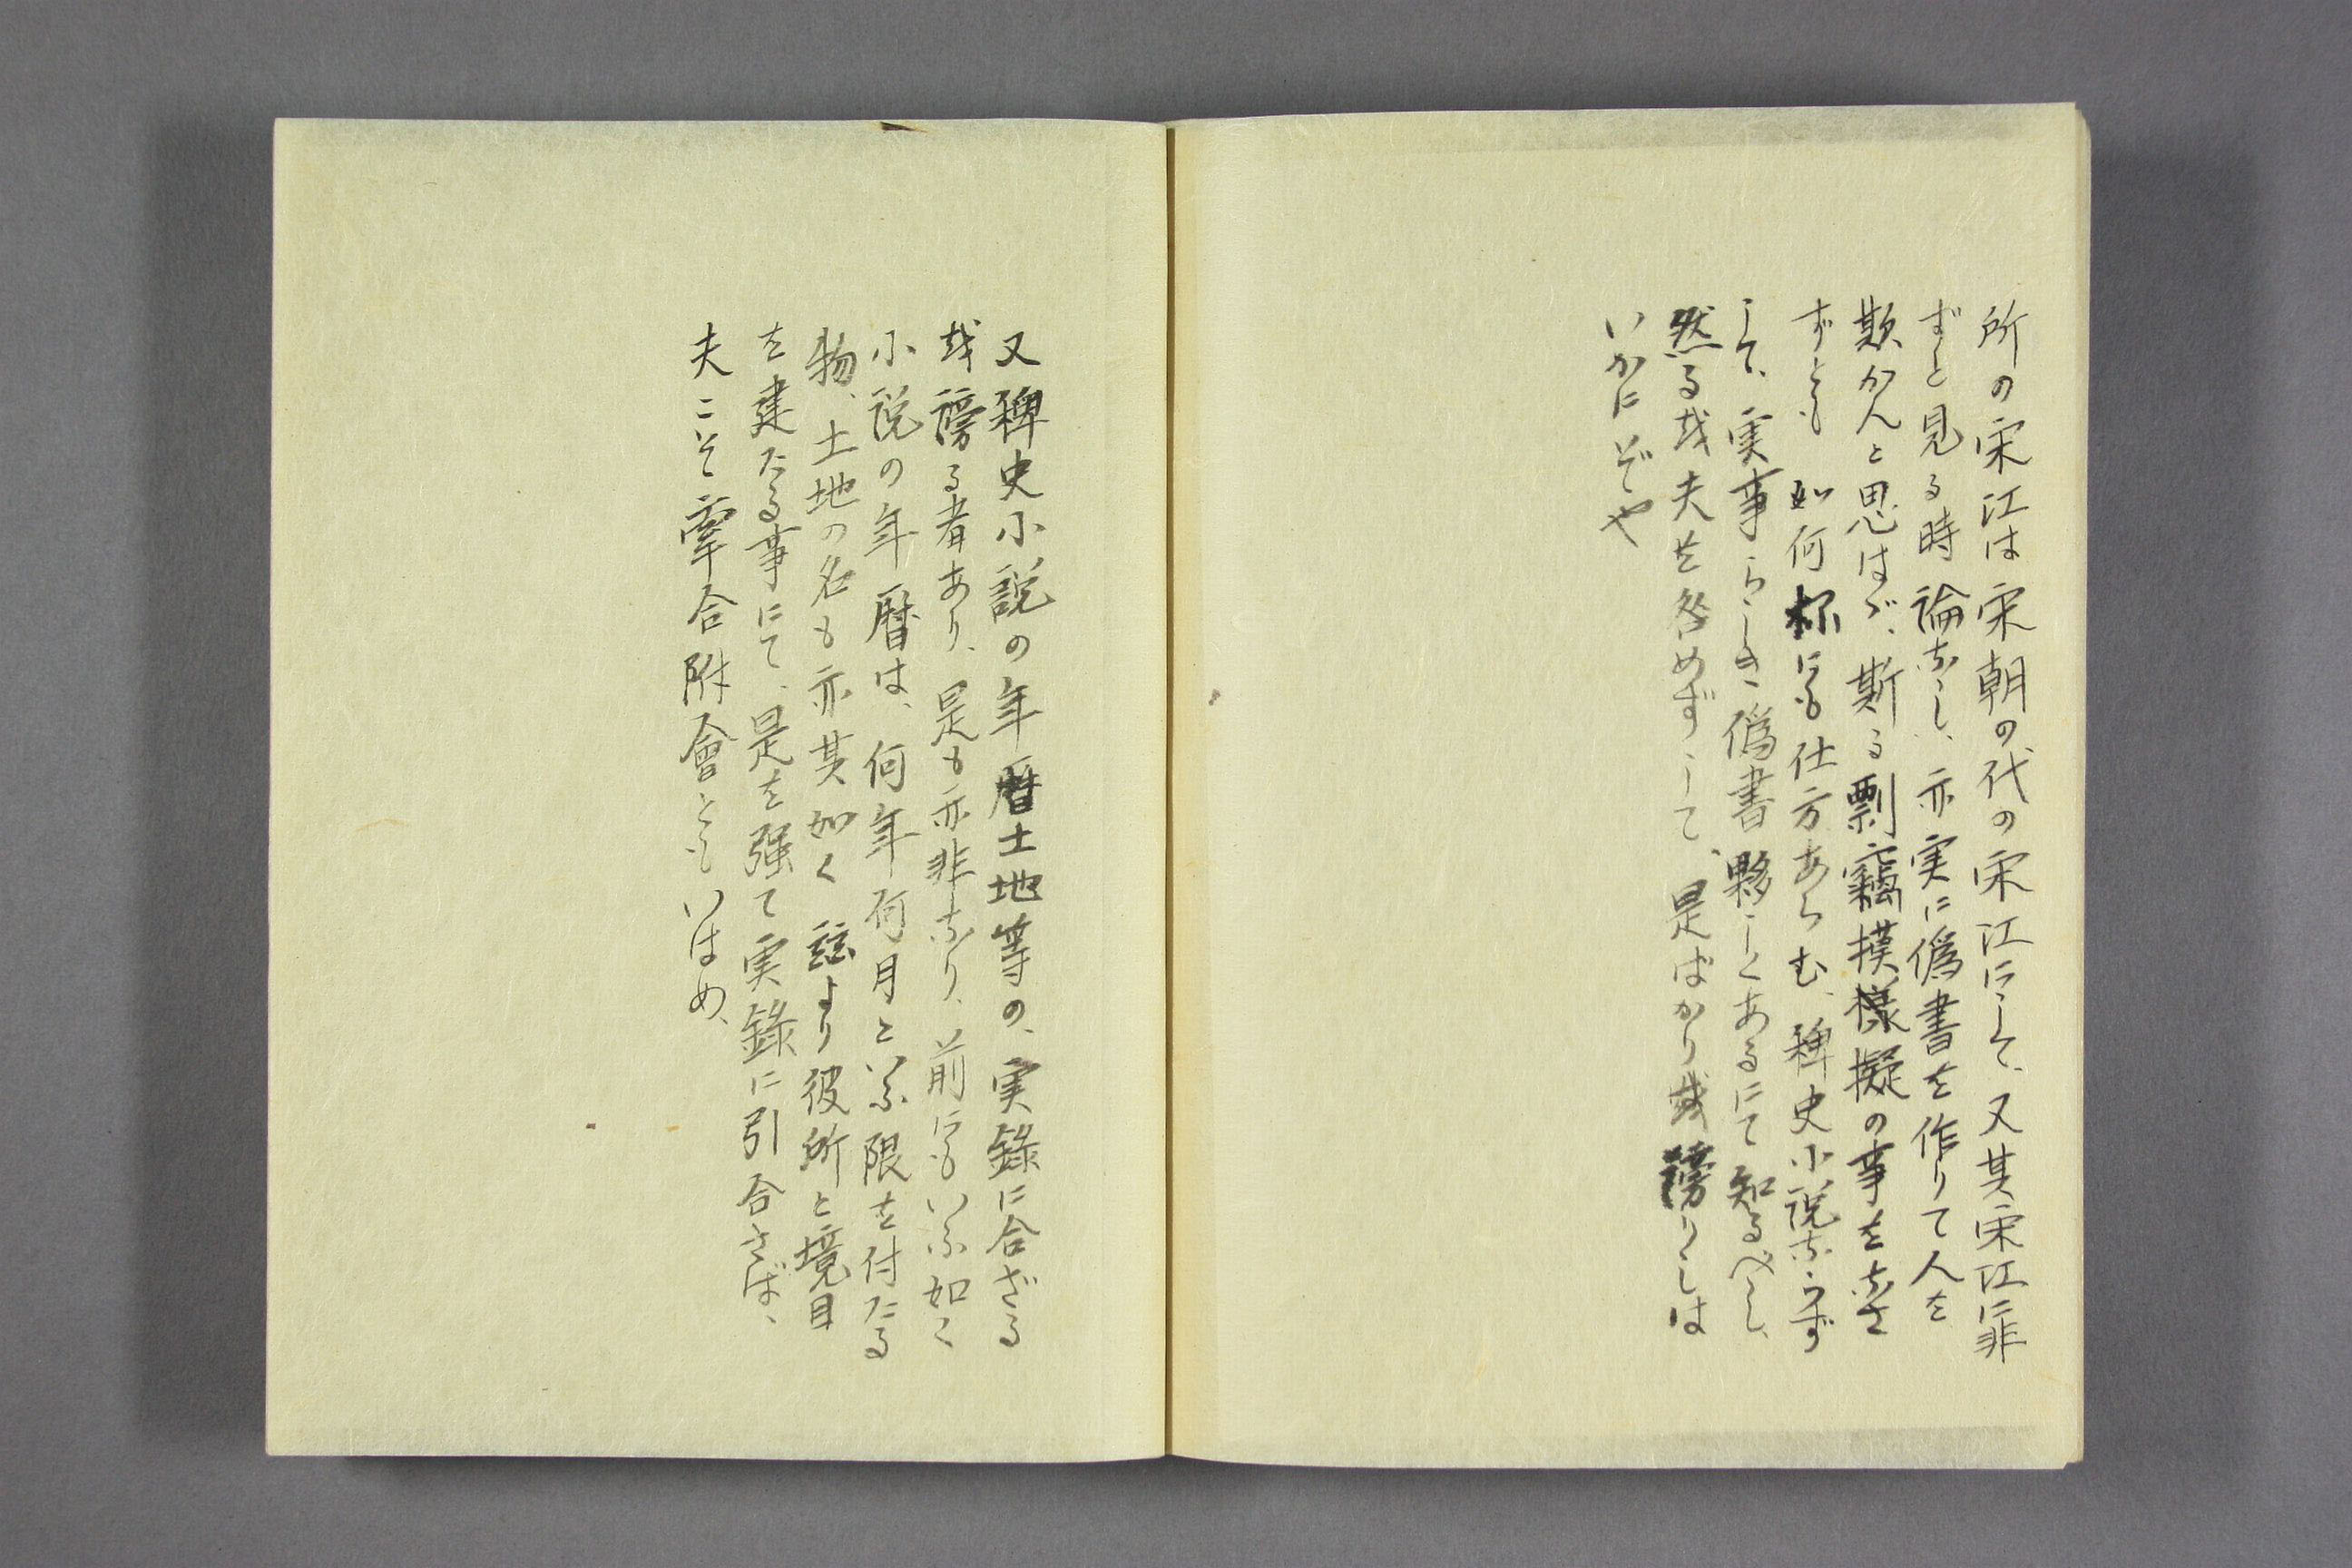 所の宋江は宋朝の代の宋江にして、又其宋江に非
ずと見る時論なし、亦実に偽書を作りて人を
欺かんと思はゞ、斯る剽竊摸様擬の事をなさ
ずとも如何杯にも仕方あらむ、稗史小説ならず
して、実事らしき偽書夥しくあるにて知るべし、
然る哉夫を咎めずして、是ばかり哉謗りしは
いかにぞや
又稗史小説の年暦土地等の、実錄に合ざる
哉謗る者あり、是も亦非なり、前にもいふ如く
小説の年暦は、何年何月といふ限を付たる
物、土地の名も亦其如く、玆より彼所と境目
を建たる事にて、是を强て実錄に引合さば、
夫こそ牽合附會ともいはめ、